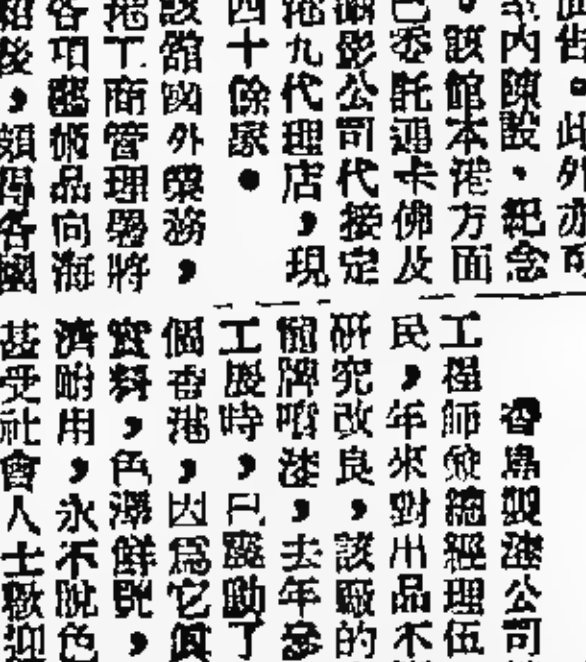 告。此外亦可
內陳設、紀念
。該館本港方面
已委託通卡佛及
攝影公司代接定
港九代理店，現
四十餘家。
該館國外業務，
港工商管理署將
各項藝術品向海
紹後，頗得各國
香島製漆公司
工程師兼總經理伍
民，年來對出品不
研究改良，該廠的
牌噴漆，去年參
工展時，已轟動了
個香港，因為它真
實料，色澤鮮艷，
濟耐用，永不脫色
甚受社會人士歡迎